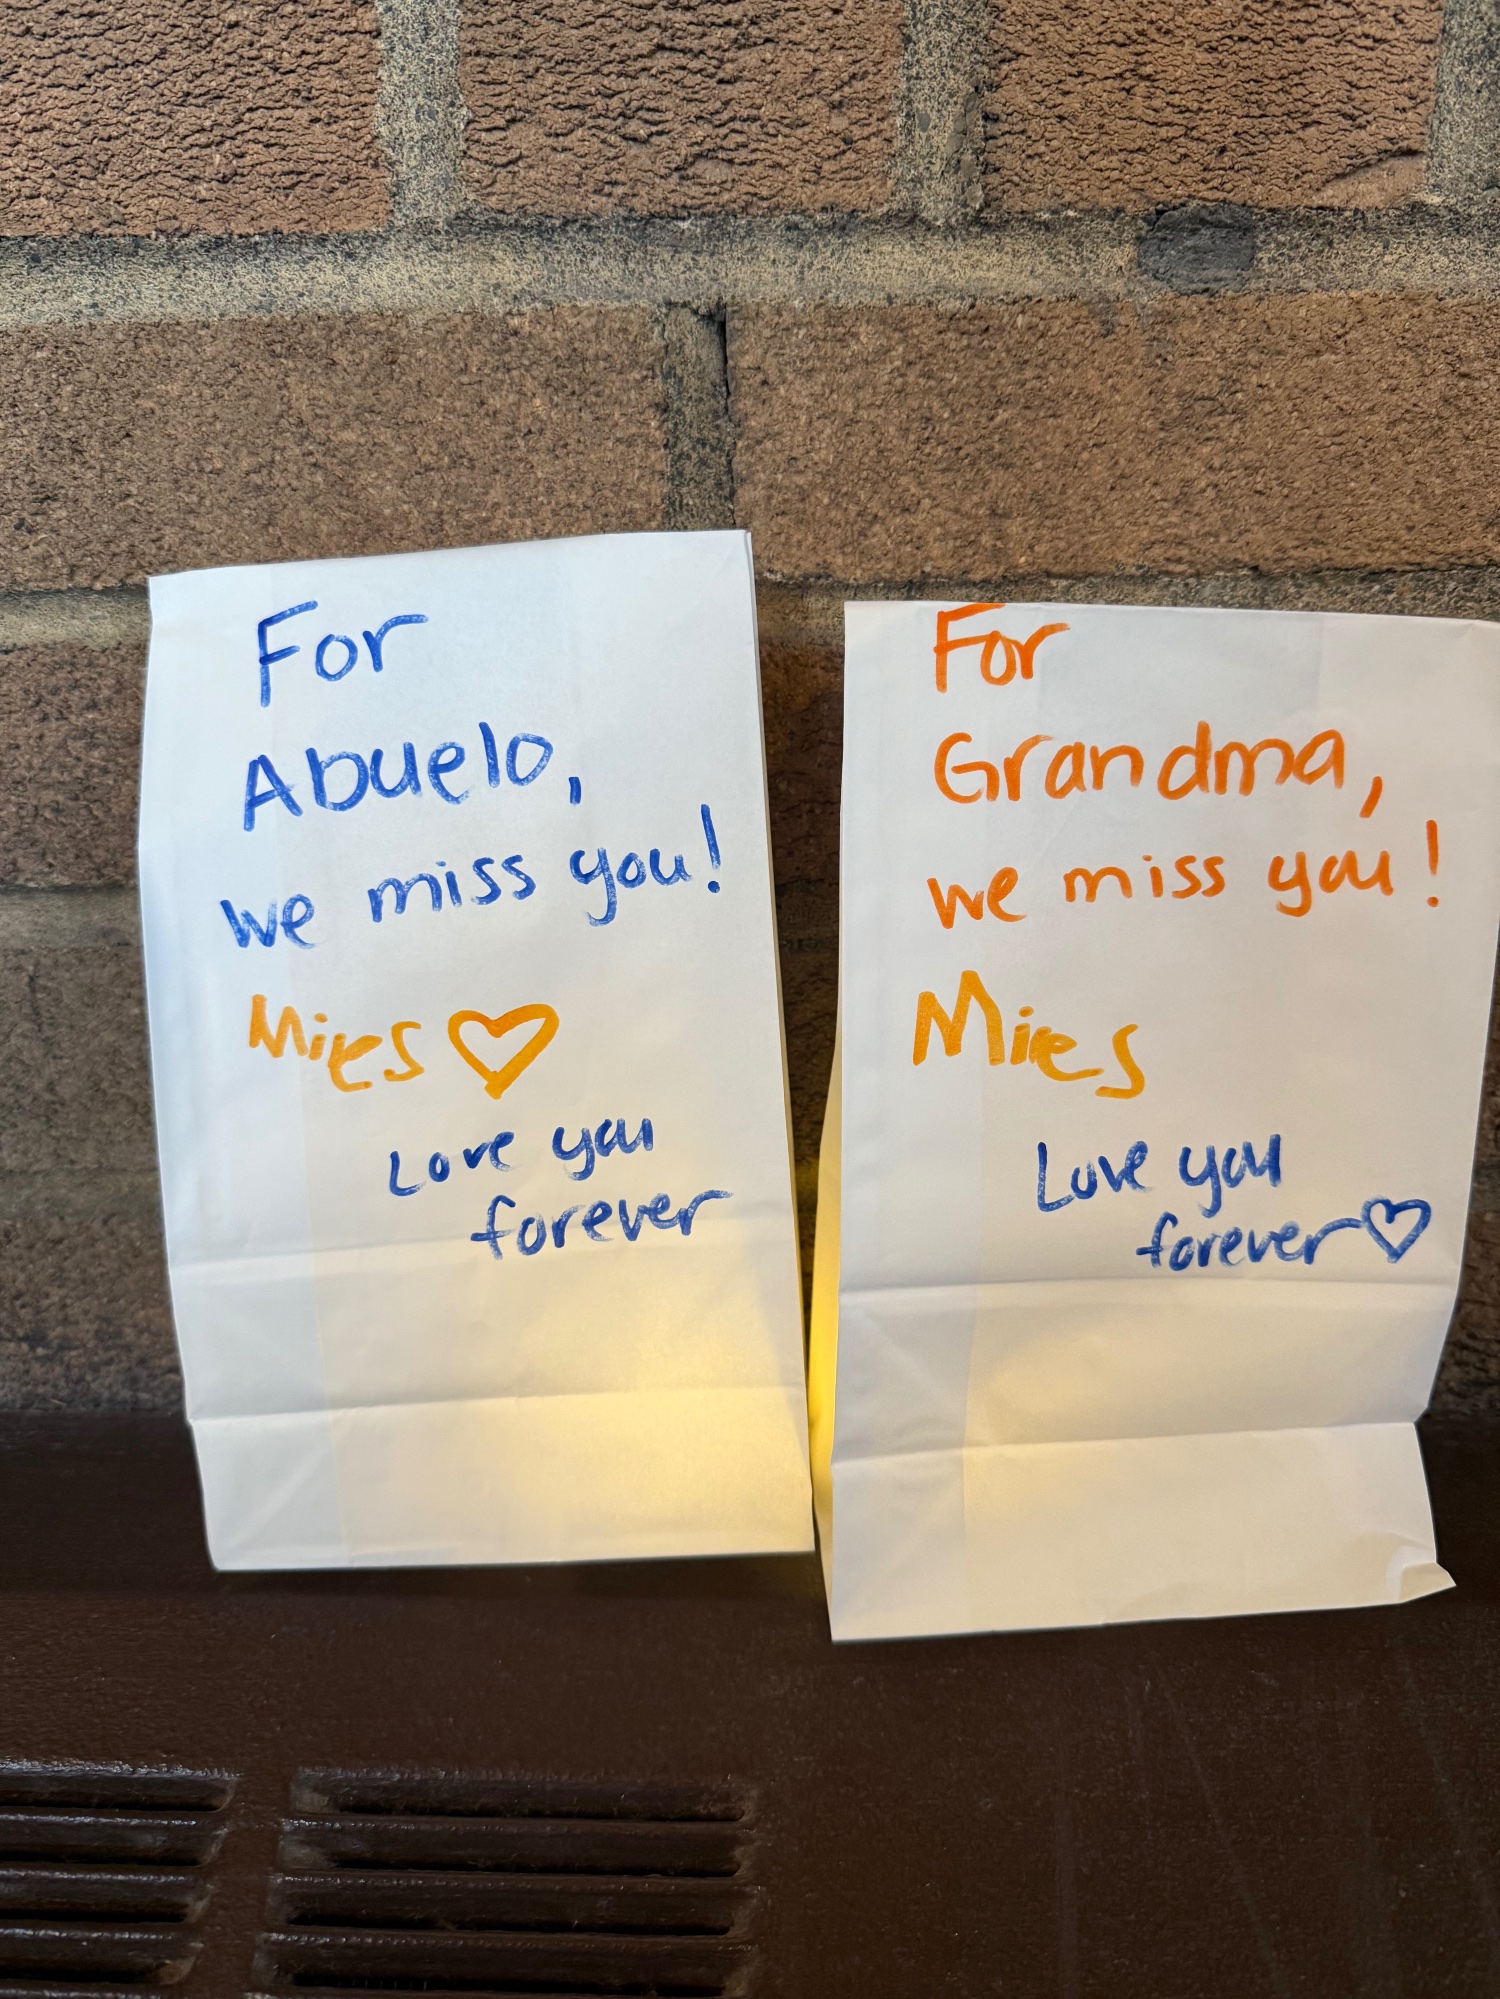 For
Abuelo,
we miss you!
Mires ♡
Love you
forever
For
Grandma,
we miss you!
Mires
Love you
forever ♡